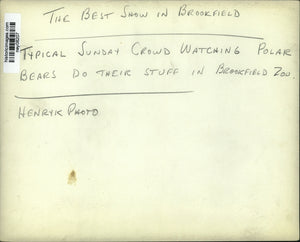 THE BEST SHOW IN BROOKFIELD
TYPICAL SUNDAY CROWD WATCHING POLAR
BEARS DO THEIR STUFF IN BROOKFIELD ZOO.
HENRYK PHOTO